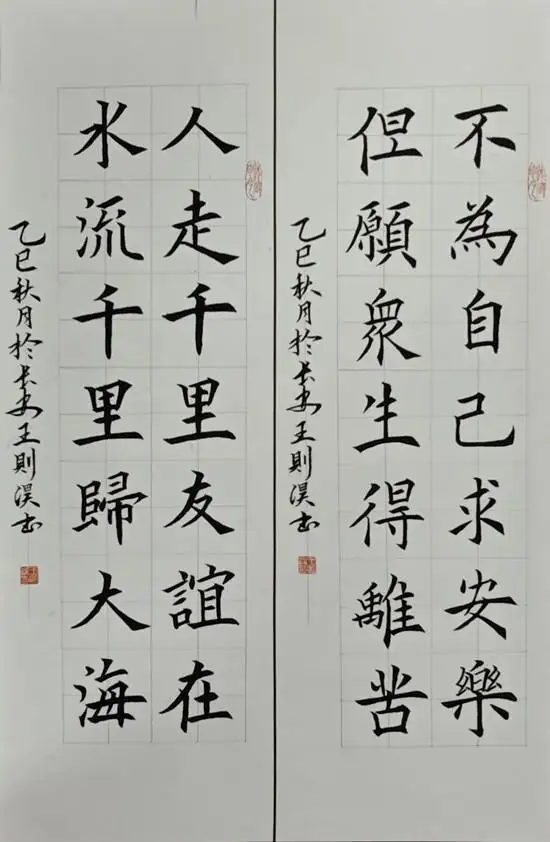 不為自己求安樂
但願衆生得離苦
乙巳秋月於長安王則淏书
人走千里友誼在
水流千里歸大海
乙巳秋月於長安王則淏书